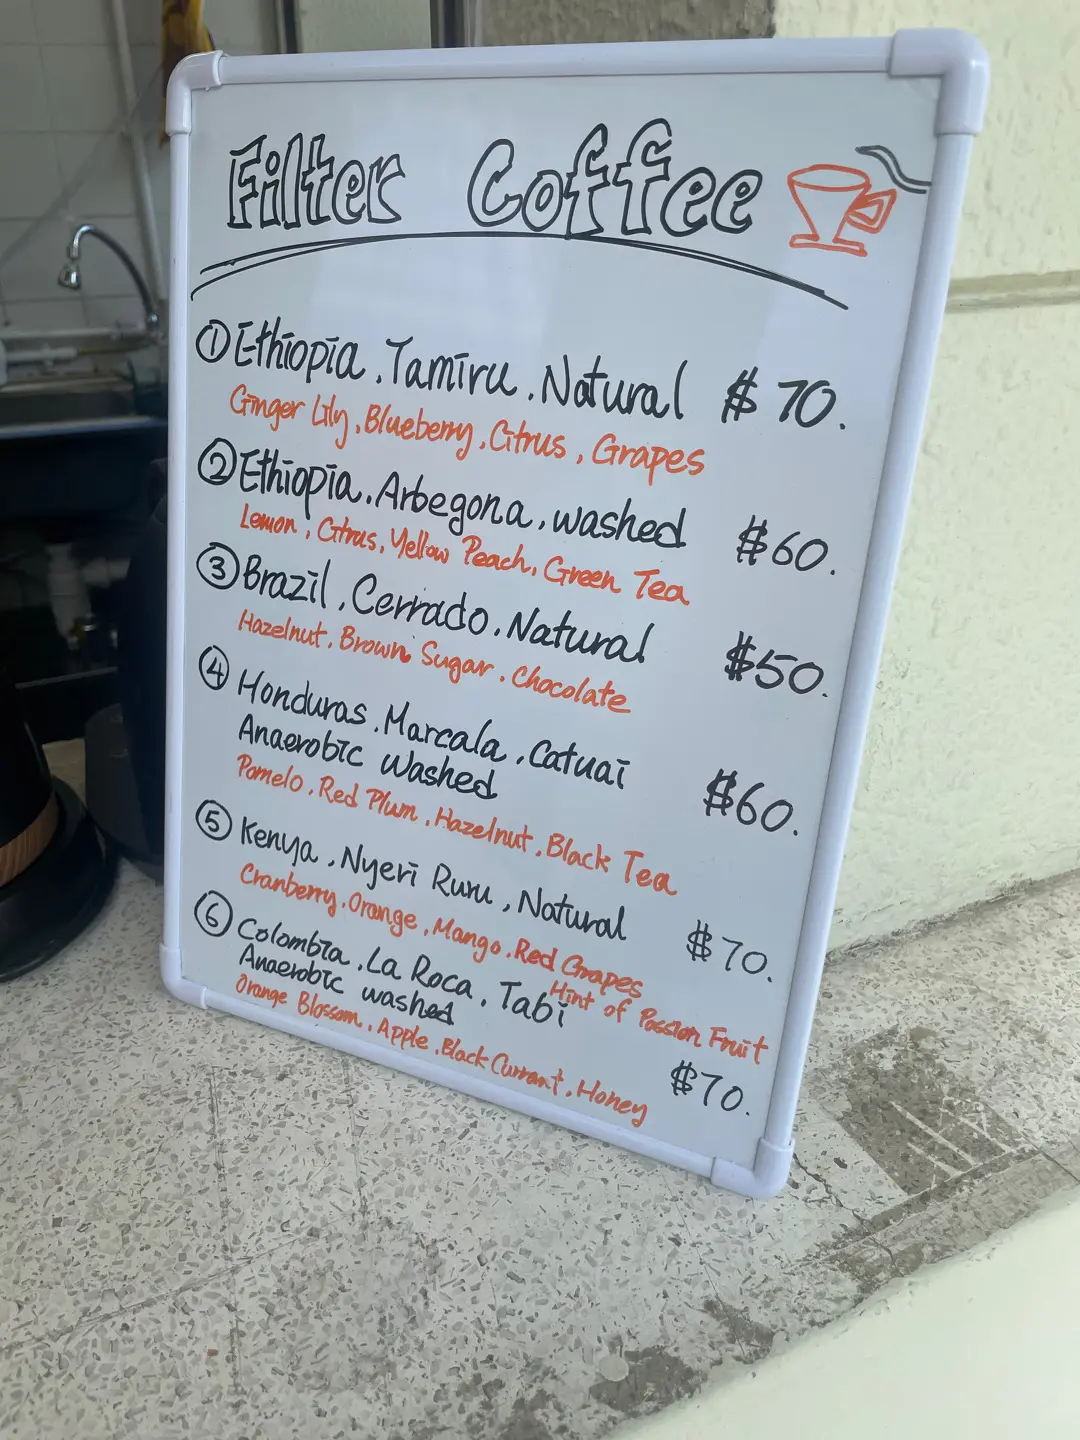 Filter Coffee
① Ethiopia . Tamiru . Natural $70.
Ginger Lily , Blueberry , Citrus , Grapes
② Ethiopia . Arbegona , washed $60.
Lemon , Citrus , Yellow Peach , Green Tea
③ Brazil , Cerrado . Natural $50.
Hazelnut . Brown Sugar . Chocolate
④ Honduras . Marcala , Catuai
Anaerobic Washed $60.
Pomelo , Red Plum , Hazelnut , Black Tea
⑤ Kenya , Nyeri Ruru , Natural $70.
Cranberry , Orange , Mango . Red Grapes
Hint of Passion Fruit
⑥ Colombia . La Roca . Tabi
Anaerobic washed $70.
Orange Blossom , Apple , Black Currant , Honey